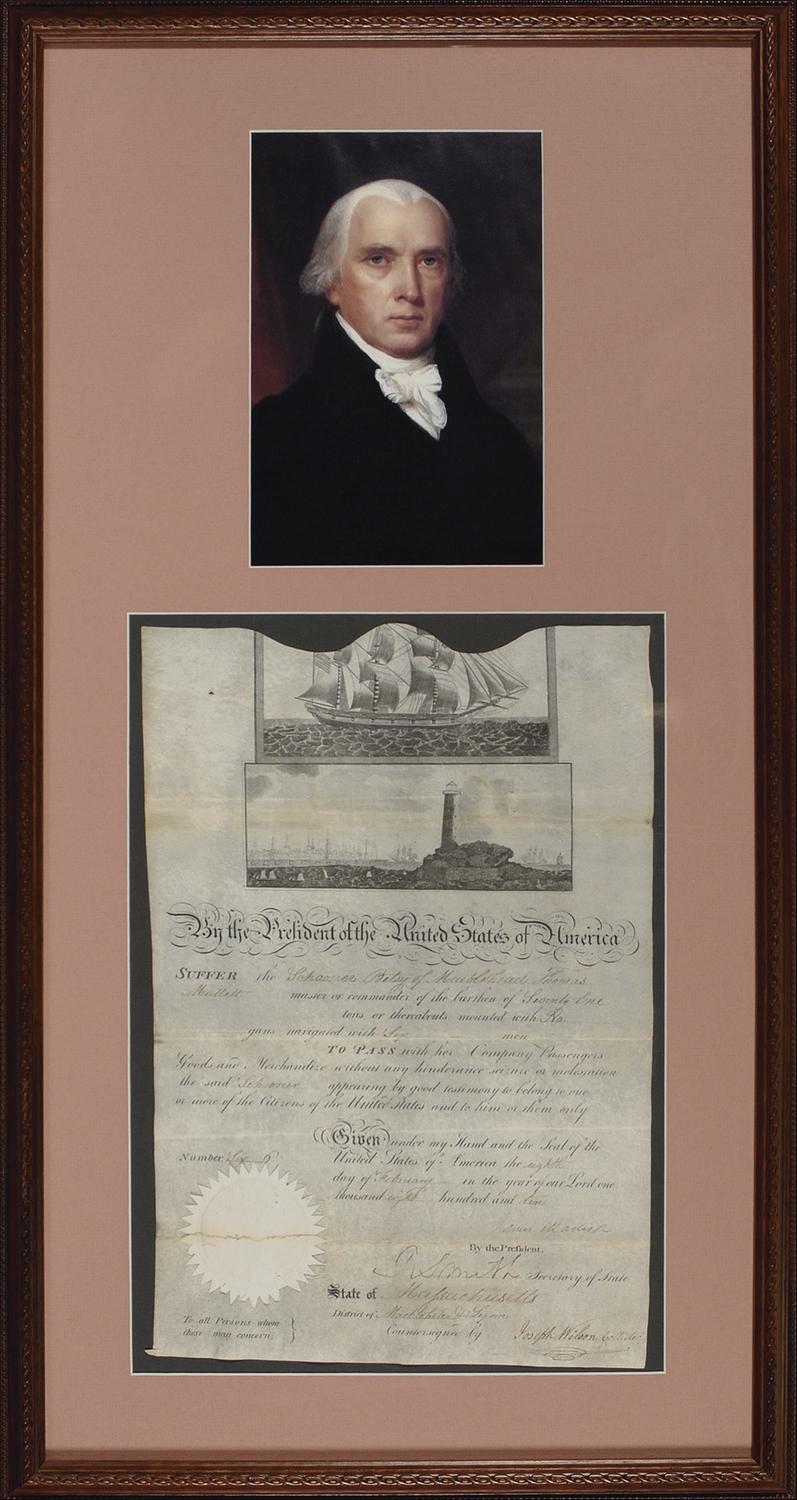 By the President of the United States of America
SUFFER the Schooner Betsy of Marblehead Thomas
Mullett master or commander of the burthen of Seventy One
tons or thereabouts mounted with No
guns navigated with Six men
TO PASS with her Company Passengers
Goods and Merchandize without any hinderance seizure or molestation
the said Schooner appearing by good testimony to belong to one
or more of the Citizens of the United States and to him or them only
Given under my Hand and the Seal of the
Number Six 6 United States of America the eighth
day of February in the year of our Lord one
thousand eight hundred and ten
James Madison
By the President,
R Smith Secretary of State
State of Massachusetts
District of Marblehead & Lynn
To all Persons whom
these may concern,
Countersigned by Joseph Wilson Collector